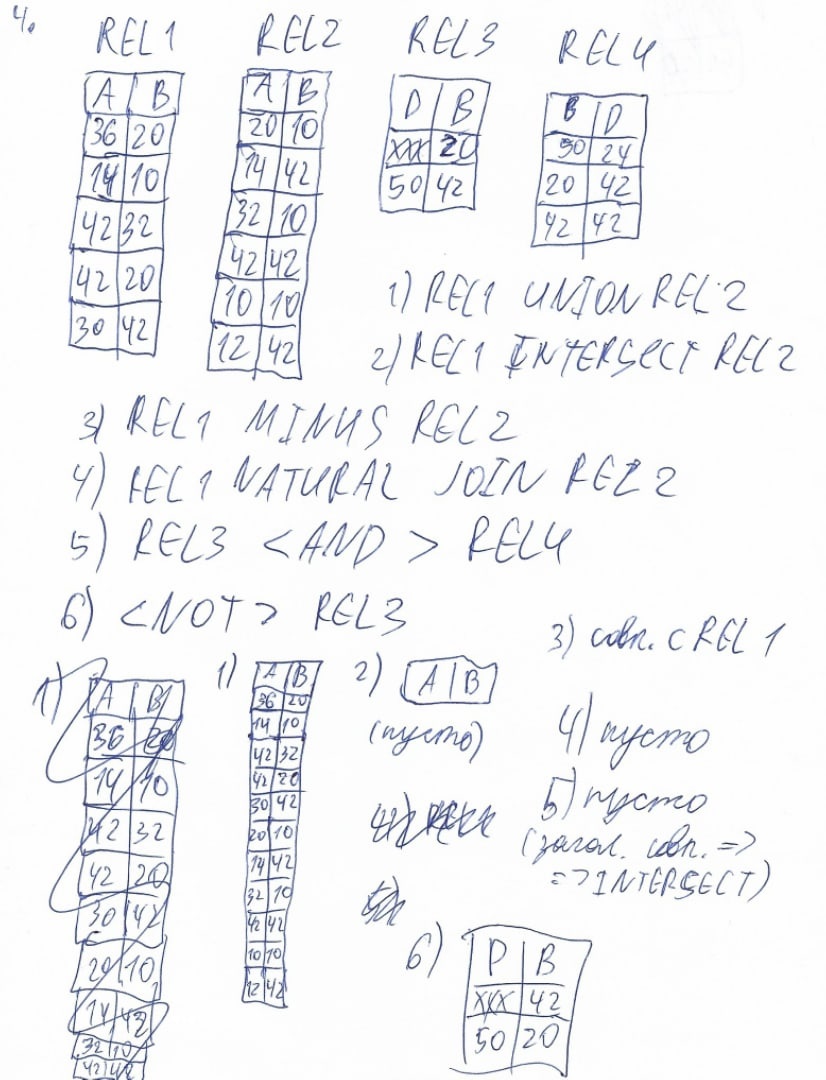 4.
REL1 REL2 REL3 REL4
A B
36 20
14 10
42 32
42 20
30 42
A B
20 10
14 42
32 10
42 42
10 10
12 42
D B
xxx 20
50 42
B D
50 24
20 42
42 42
1) REL1 UNION REL2
2) REL1 INTERSECT REL2
3) REL1 MINUS REL2
4) REL1 NATURAL JOIN REL2
5) REL3 <AND> REL4
6) <NOT> REL3
1)
A B
36 20
14 10
42 32
42 20
30 42
20 10
14 42
32 10
42 42
1)
A B
36 20
14 10
42 32
42 20
30 42
20 10
14 42
32 10
42 42
10 10
12 42
2) A B
(пусто)
3) совп. с REL1
4) пусто
5) пусто
(загол. совп. =>
=> INTERSECT)
6)
D B
xxx 42
50 20